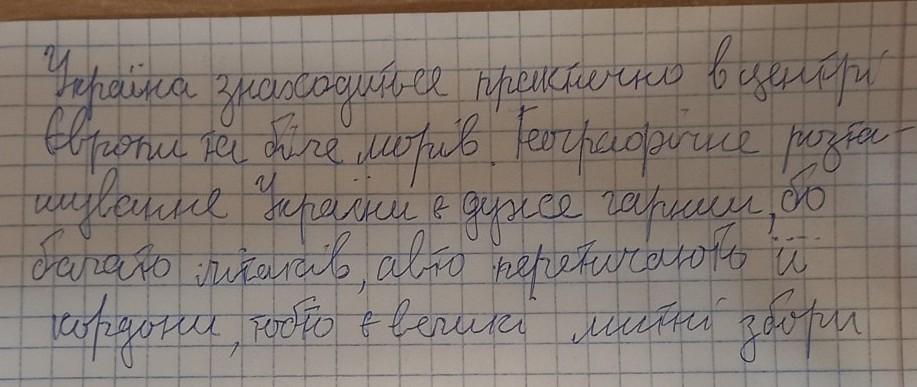 Україна знаходиться практично в центрі
Європи та біля морів. Географічне розта-
шування України є дуже гарним, бо
багато літаків, авто перетинають її
кордони, тобто є великі митні збори